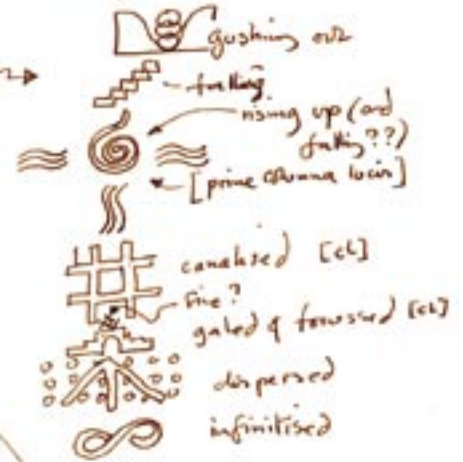 gushing out
falling
rising up (and
falling??)
[prime
canalised [cl]
fire?
gated & focussed [cl]
dispersed
infinitised